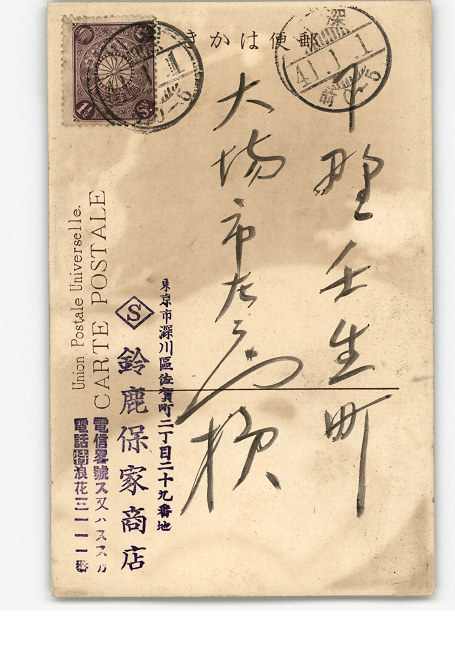 郵便はかき
深川
41.1.1
下野壬生町
大場市左衛門様
東京市深川區佐賀町二丁目二十九番地
S
鈴鹿保家商店
電信畧號スヌハススカ
電話特浪花三一一一番
CARTE POSTALE
Union Postale Universelle.